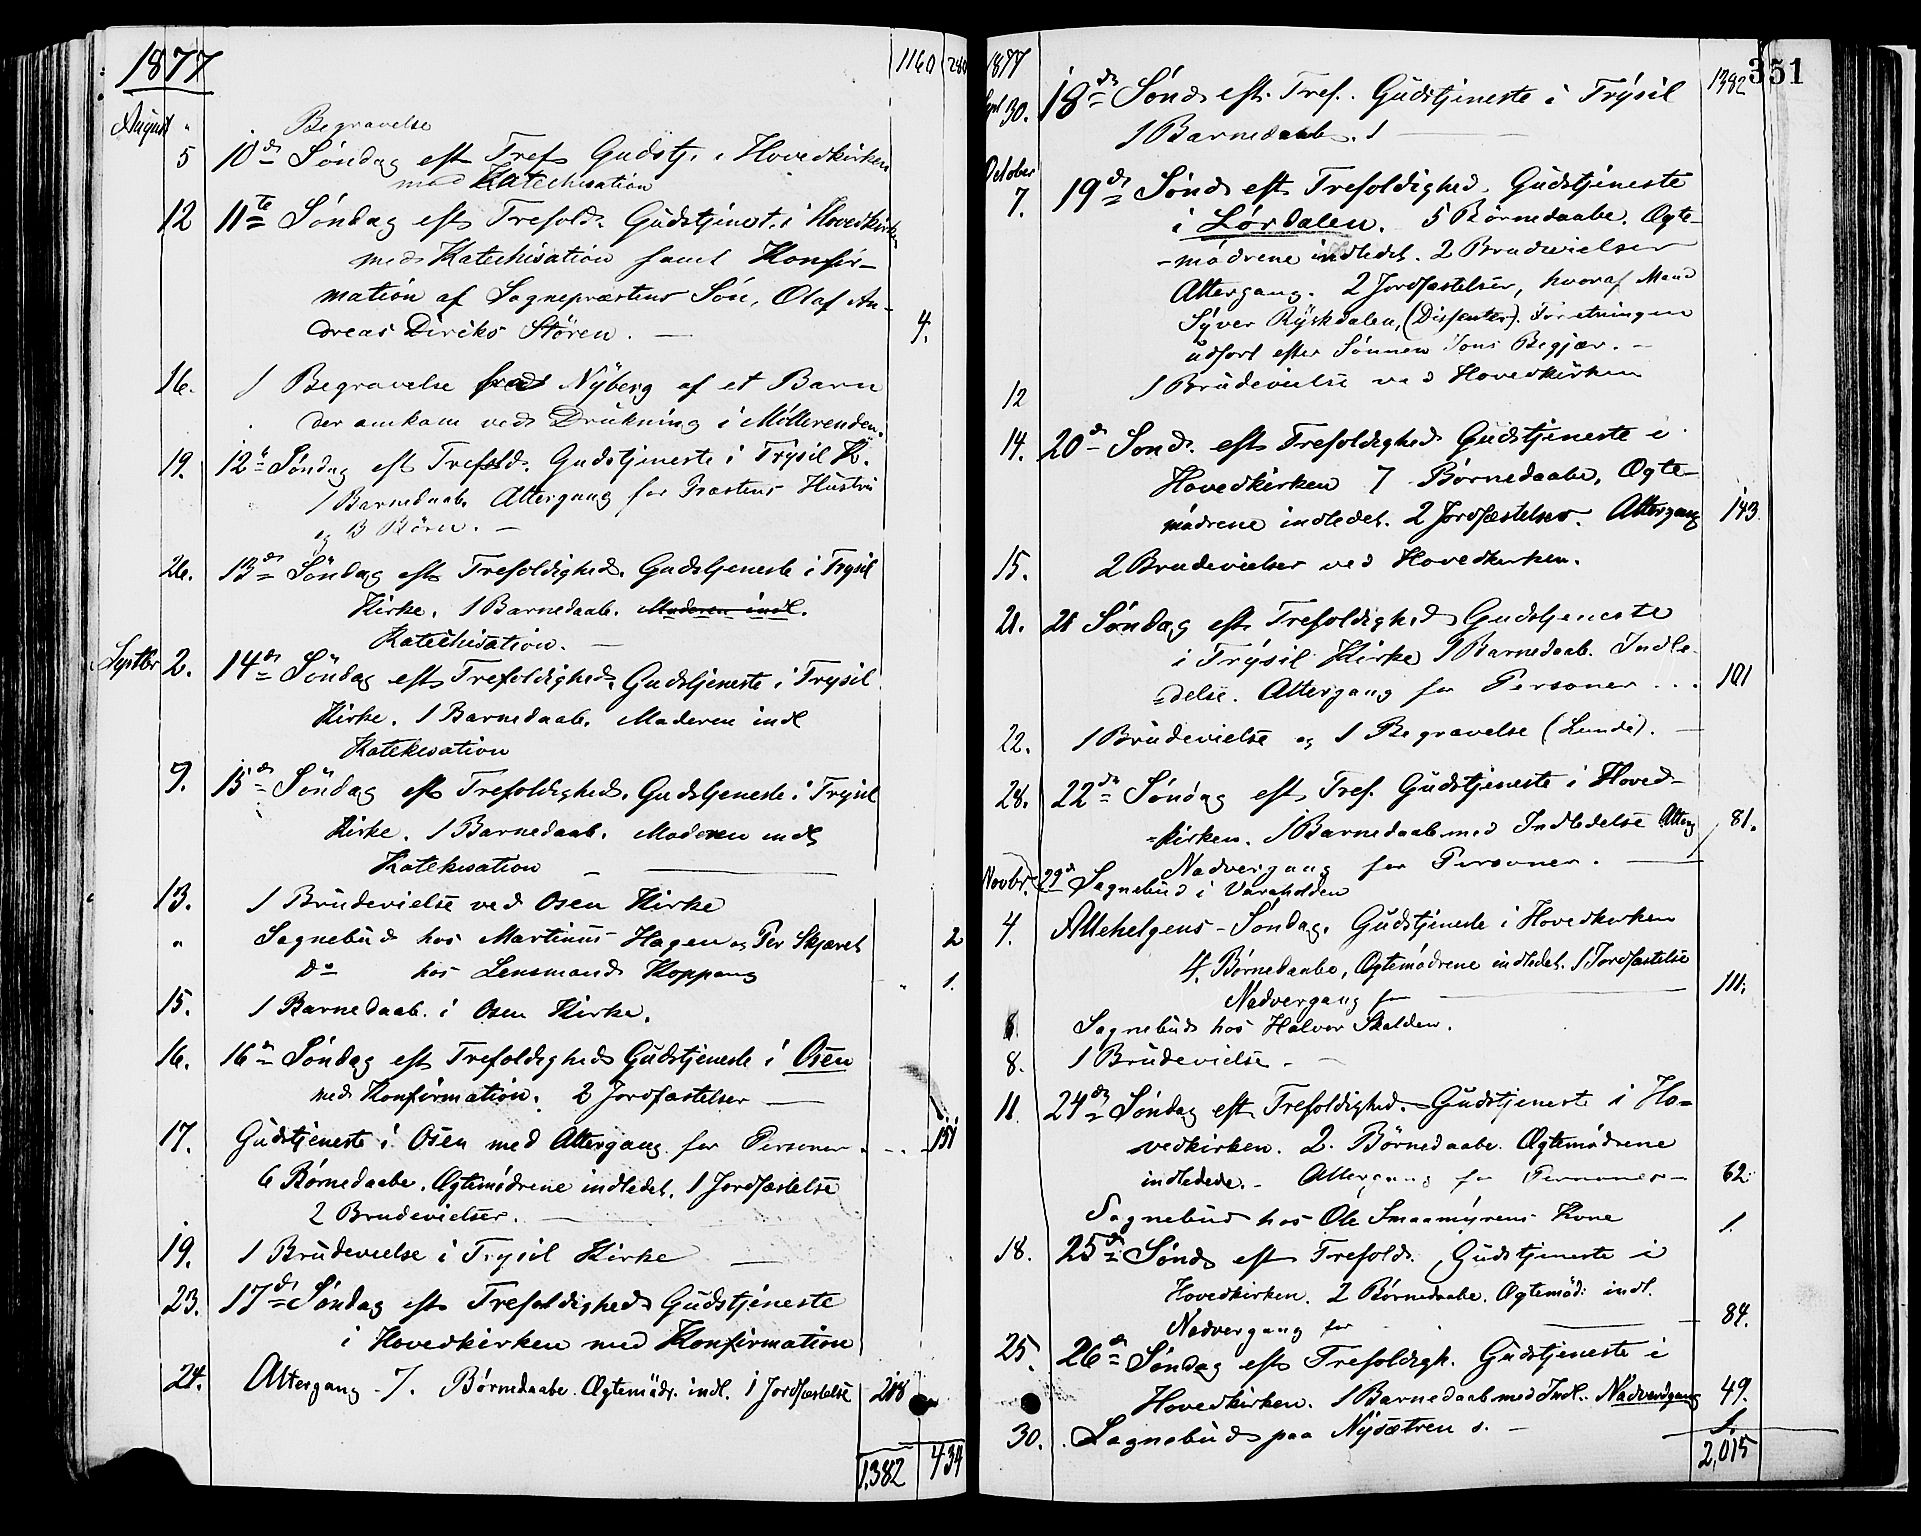 1877 1160 280
August " Begravelse
5 10de Søndag eft Tref Gudstj. i Hovedkirken
med Katechisation
12 11te Søndag eft Trefold. Gudstjenst. i Hovedkirken
med Katechisation samt Konfir-
mation af Sognepræstens Søn, Olaf An-
dreas Diriks Stören. — 4.
16. 1 Begravelse Nÿberg af et Barn
der omkom ved Drukning i Møllerenden.
19. 12te Søndag eft Trefold. Gudstjeneste i Trysil K.
1 Barnedaab. Altergang for Præstens Hustru
og 3 Börn. —
26. 13de Søndag eft Trefoldighed. Gudstjeneste i Trysil
Kirke. 1 Barnedaab. Moderen indl.
Katechisation. —
Septbr 2. 14de Søndag eft Trefoldighed. Gudstjeneste i Trysil
Kirke. 1 Barnedaab. Moderen indl
Katekisation
9. 15de Søndag eft Trefoldighed. Gudstjeneste i Trysil
Kirke. 1 Barnedaab. Moderen indl
Katekisation —
13. 1 Brudevielse ved Osen Kirke
" Sognebud hos Martinus Hagen og Per Skjæret 2
do hos Lensmand Koppang 1.
15. 1 Barnedaab. i Osen Kirke.
16. 16de Søndag eft Trefoldighed Gudstjeneste i Osen
med Konfirmation. 2 Jordfæstelser —
17. Gudstjeneste i Osen med Altergang for Personer . - . - 151
6 Børnedaabe. Ægtemødrene indledet. 1 Jordfæstelse
2 Brudevielser. —
19. 1 Brudevielse i Trysil Kirke —
23. 17de Søndag eft Trefoldighed Gudstjeneste
i Hovedkirken med Konfirmation
24. Altergang - 7. Børnedaabe. Ægtemödr. indl. 1 Jordfæstelse 218
1,382 434
351
1877 1382
Sept 30. 18de Sönd. eft. Tref. Gudstjeneste i Trysil
1 Barnedaab. 1 —
October
7. 19de Sönd eft Trefoldighed. Gudstjeneste
i Lördalen. 5 Börnedaabe. Ægte-
-mödrene indledet. 2 Brudevielser
Altergang. 2 Jordfæstelser, hvoraf Mand
Syver Ryskdalen, (Dissenter). Forretningen
udført efter Sønnen Jons Begjær. —
12 1 Brudevielse ved Hovedkirken
14. 20de Sönd. eft Trefoldighed Gudstjeneste i
Hovedkirken 7 Börnedaabe, Ægte-
mödrene indledet. 2 Jordfæstelser. Altergang 143.
15. 2 Brudevielser ved Hovedkirken.
21. 21 Søndag eft Trefoldighed Gudstjeneste
i Trysil Kirke 1 Barnedaab. Indle-
delse. Altergang for Personer ... 101
22. 1 Brudevielse og 1 Begravelse (Lunde). —
28. 22de Søndag eft Tref. Gudstjeneste i Hoved-
-kirken. 1 Barnedaab med Indledelse Alterg 81.
Nadvergang for Personer. —
Novbr. 29de Sognebud i Varaholden
4. Allehelgens-Søndag. Gudstjeneste i Hovedkirken
4. Børnedaabe, Ægtemödrene indledet. 1 Jordfæstelse
Nadvergang for — 111.
Sognebud hos Halvor Skolden.
8. 1 Brudevielse. —
11. 24de Søndag eft Trefoldighed. Gudstjeneste i Ho-
vedkirken. 2. Börnedaabe. Ægtemødrene
indledede. - Altergang for Personer — 62
Sognebud hos Ole Smaamyrens Kone 1.
18. 25de Sönd eft Trefold. Gudstjeneste i
Hovedkirken. 2 Børnedaabe. Ægtemöd: indl.
Nadvergang for — 84.
25. 26de Søndag eft Trefoldigh. Gudstjeneste i
Hovedkirken. 1 Barnedaab med Indl. Nadverdgang 49.
30. Sognebud paa Nysætren s. — 1.
2,015